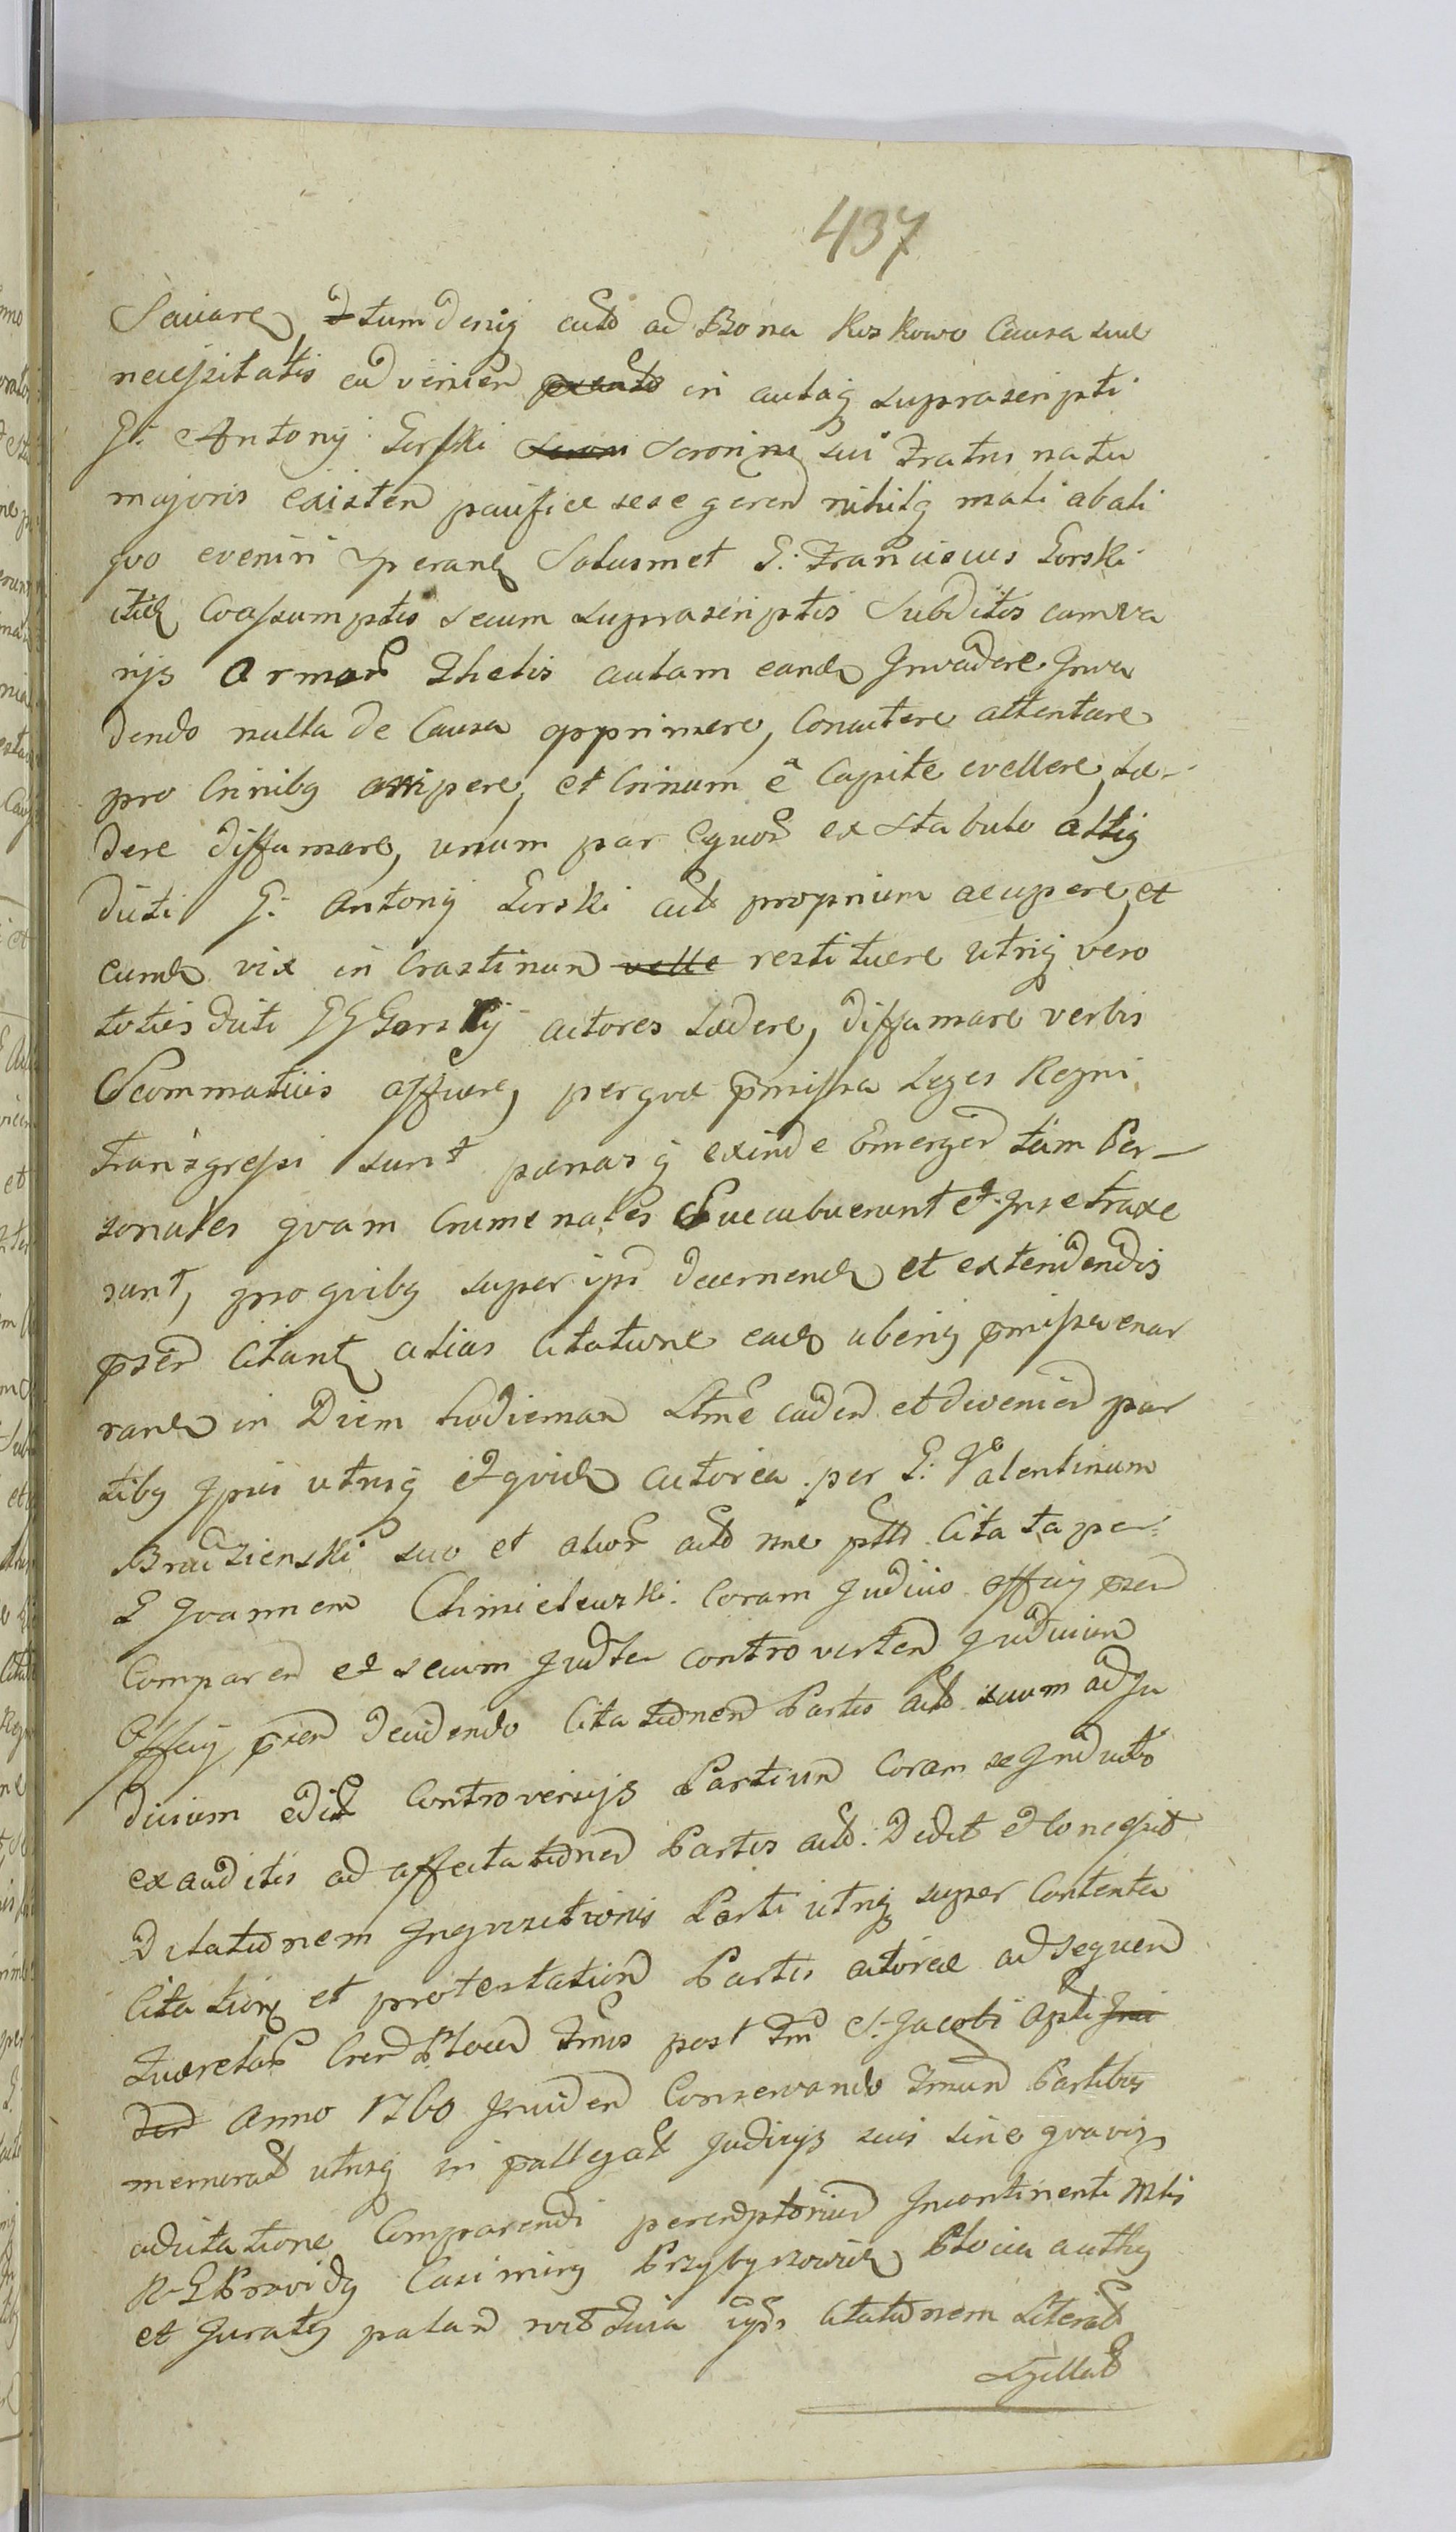 437
Sauare, tum deniq actō ad Bona Koskowo Causa suæ
necessitatis ea venien in aulaq suprascripti
G: Antonij Gorski Sororini sui Fratris natu
majoris existen pacifice sese geren nihilq mali ab ali
quo eveniri speran Solusmet G: Franciscus Gorski
Coassumptis secum suprascriptis Subditis cum va
rijs armor Thelis aulam eand Invadere Inva
dendo nulla de Causa opprimere, Concutere attentare
pro Crinibq arripere, et Crinum é Capite evellere, Læ-
dere diffamare, unum par Equor ex stabulo attiq
dicti G: Antonij Gorski act proprium accipere, et
eund vix in Crastinum velle restituere utriq vero
toties dicti GG Gorskij actores Lædere, diffamare verbis
Scommaticis afficere, per quæ pmissa Leges Regni
transgressi sunt pænasq exinde Emergen tam Per-
sonales quam Crimenales Succubuerunt et In se traxe
runt, pro quibq super ips decernend et extendendis
psen citant alias Citatione ead uberiq pmissa enar
rand in Diem hodiernam Ltme caden et devenien par
tibq Ipsis utrisq et quid actorea per G: Valentinum
Bradzienski suo et alior actō nne pttō Citata per
G Joannem Chmielewski Coram Judicio Officij psen
Comparen et secum Judtr controverten Judicium
Officij psen decidendo Citationem Partis actō suam ad Ju
dicium edit Controversijs Partium Coram se Inductis
exauditis ad affectationem Partis actō: Dedit et Concessit
Dilationem Inquisitionis Parti utriq super Contenta
Citation et protestation Partis actoreæ ad sequen
Quærelar Cren Plocen Tmis post Fm S: Jacobi Apli
Anno 1760 Inciden Conservando Tmum Partibus
memorat utrisq in pallegat Judicijs suis sine quavis
adcitatione Comparendi peremptorium Incontinenti Mtis
R G Providq Casimirq Przybyszowicz Plocen
et Juratq palam ips Citationem Literat
Sgillat